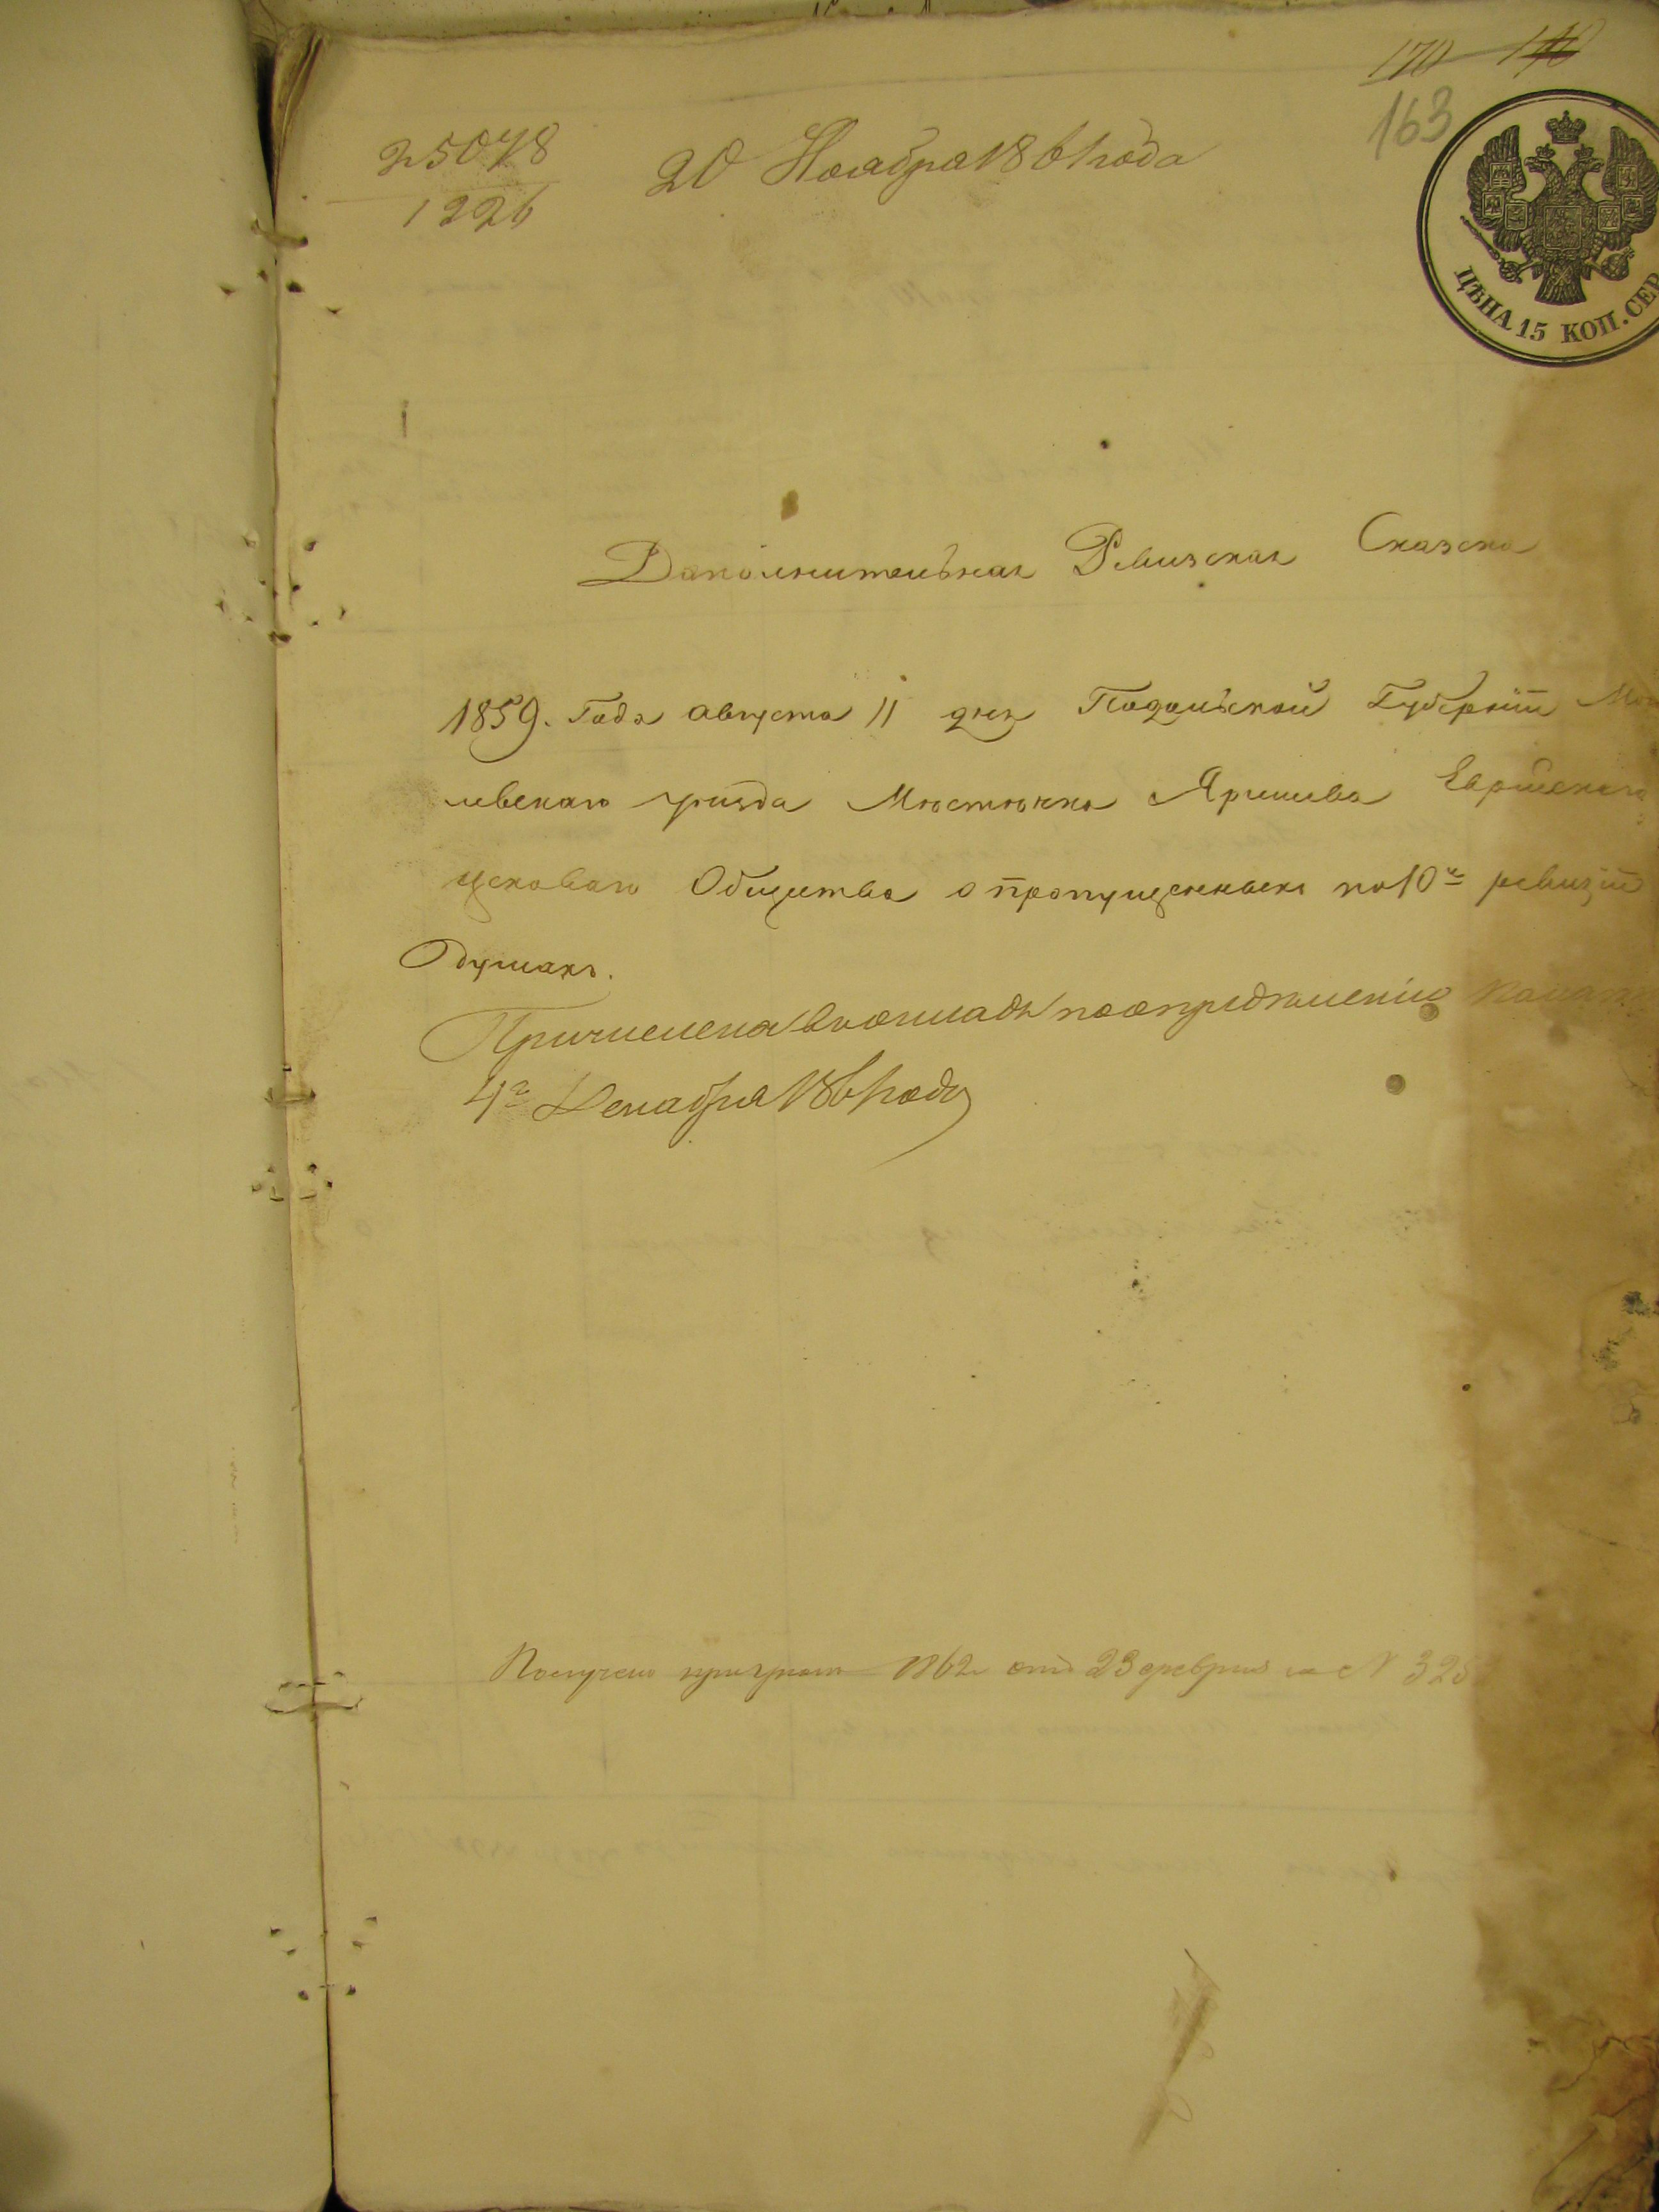 170 140
163
25048
1226
20 Ноября 1861 года
ЦѢНА 15 КОП. СЕР
Дополнительная Ревизская Сказска
1859. Года августа 11 дня Подольской Губерніи Мо
левскаго уѣзда Мѣстѣчка Яришева Еврейскаго
цеховаго Общества о пропущенныхъ по 10й ревизіи
душахъ.
Причислена въ окладъ по опредѣленію Палаты
4го Декабря 1861 года
Получено при 1862 отъ 23 февраля за № 325